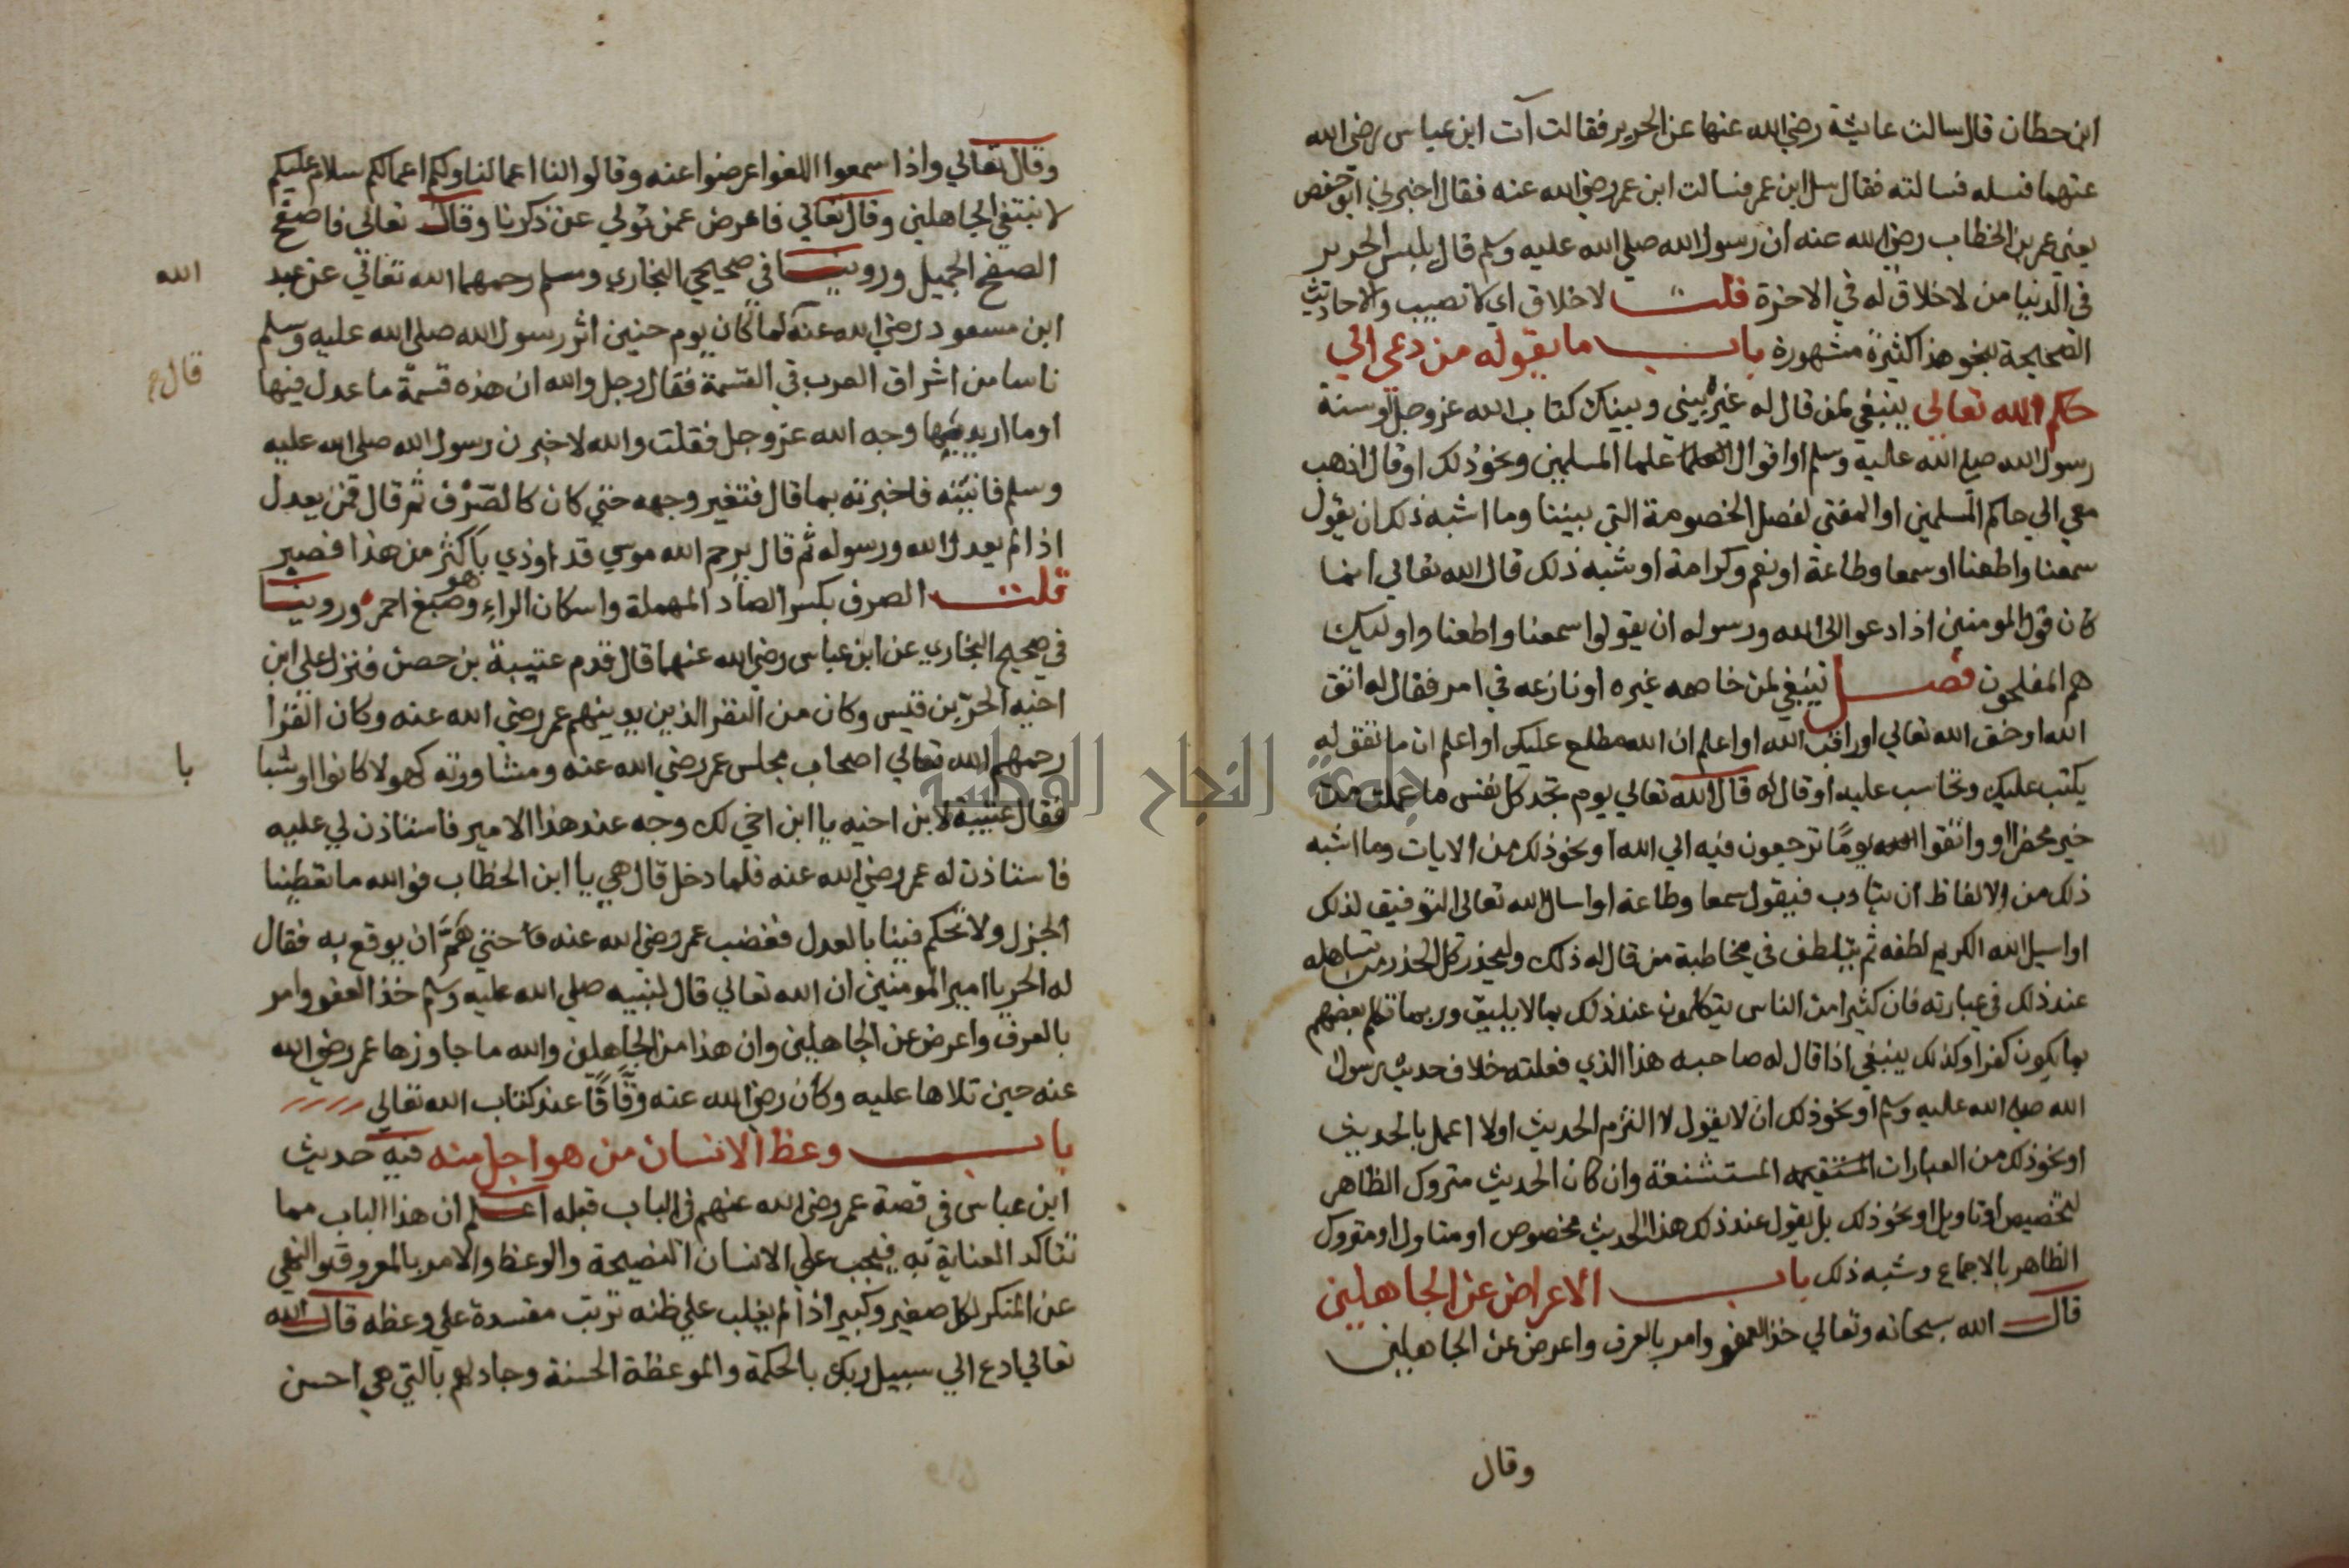 ابن حطان قال سالت عايشة رضي الله عنها عن الحرير فقالت آت ابن عباس رضي الله
عنهما فسله فسالته فقال سل ابن عمر فسالت ابن عمر رضي الله عنه فقال اخبرني ابو حفص
يعني عمر بن الخطاب رضي الله عنه ان رسول الله صلي الله عليه وسلم قال يلبس الحرير
في الدنيا من لا خلاق له في الاخرة قلت لا خلاق اي لا نصيب والاحاديث
الصحيحة بنحو هذا كثيرة مشهورة باب ما يقوله من دعي الي
حكم الله تعالي ينبغي لمن قال له غيره بيني وبينك كتاب الله عز وجل او سنة
رسول الله صلي الله عليه وسلم او اقوال العلما علما المسلمين ونحو ذلك او قال اذهب
معي الي حاكم المسلمين او المفتي لفصل الخصومة التي بيننا وما اشبه ذلك ان يقول
سمعنا واطعنا او سمعا وطاعة او نعم وكرامة او شبه ذلك قال الله تعالي انما
كان قول المومنين اذا دعوا الى الله ورسوله ان يقولوا سمعنا واطعنا واوليك
هم المفلحون فصل ينبغي لمن خاصمه غيره او نازعه في امر فقال له اتق
الله او خف الله تعالي او راقب الله او اعلم ان الله مطلع عليك او اعلم ان ما تقوله
يكتب عليك وتحاسب عليه او قال له قال الله تعالي يوم تجد كل نفس ما عملت من
خير محضرا او واتقوا يوما ترجعون فيه الي الله او نحو ذلك من الايات وما اشبه
ذلك من الالفاظ ان يتادب فيقول سمعا وطاعة او اسال الله تعالى التوفيق لذلك
او اسيل الله الكريم لطفه ثم يتلطف في مخاطبة من قال له ذلك وليحذر كل الحذر من تساهله
عند ذلك في عبارته فان كثيرا من الناس يتكلمون عند ذلك بما لا يليق وربما تكلم بعضهم
بما يكون كفرا وكذلك ينبغي اذا قال له صاحبه هذا الذي فعلته خلاف حديث رسول
الله صلي الله عليه وسلم او نحو ذلك ان لا يقول لا التزم الحديث او لا اعمل بالحديث
او نحو ذلك من العبارات المستشنعة وان كان الحديث متروك الظاهر
لتخصيص او تاويل او نحو ذلك بل يقول عند ذلك هذا الحديث مخصوص او متاول او متروك
الظاهر بالاجماع وشبه ذلك باب الاعراض عن الجاهلين
قال الله سبحانه وتعالي خذ العفو وامر بالعرف واعرض عن الجاهلين
وقال
وقال تعالي واذا سمعوا اللغو اعرضوا عنه وقالوا لنا اعمالنا ولكم اعمالكم سلام عليكم
لا نبتغي الجاهلين وقال تعالي فاعرض عمن تولي عن ذكرنا وقال تعالى فاصفح
الصفح الجميل وروينا في صحيحي البخاري ومسلم رحمهما الله تعالي عن عبد الله
ابن مسعود رضي الله عنه لما كان يوم حنين اثر رسول الله صلي الله عليه وسلم
ناسا من اشراف العرب في القسمة فقال رجل والله ان هذه قسمة ما عدل فيها قال
او ما اريد بها وجه الله عز وجل فقلت والله لاخبرن رسول الله صلي الله عليه
وسلم فاتيته فاخبرته بما قال فتغير وجهه حتي كان كالصرف ثم قال فمن يعدل
اذا لم يعدل الله ورسوله ثم قال يرحم الله موسي قد اوذي باكثر من هذا فصبر
قلت الصرف بكسر الصاد المهملة واسكان الراء وهو صبغ احمر وروينا
في صحيح البخاري عن ابن عباس رضي الله عنهما قال قدم عيينة بن حصن فنزل علي ابن
اخيه الحر بن قيس وكان من النفر الذين يدينهم عمر رضي الله عنه وكان القرا
رحمهم الله تعالي اصحاب مجلس عمر رضي الله عنه ومشاورته كهولا كانوا او شبا با
فقال عيينة لابن اخيه يا ابن اخي لك وجه عند هذا الامير فاستاذن لي عليه
فاستاذن له عمر رضي الله عنه فلما دخل قال هي يا ابن الخطاب فوالله ما تعطينا
الجزل ولا تحكم فينا بالعدل فغضب عمر رضي الله عنه حتي هم ان يوقع به فقال
له الحر يا امير المومنين ان الله تعالي قال لنبيه صلي الله عليه وسلم خذ العفو وامر
بالعرف واعرض عن الجاهلين وان هذا من الجاهلين والله ما جاوزها عمر رضي الله
عنه حين تلاها عليه وكان رضي الله عنه وقافا عند كتاب الله تعالي
باب وعظ الانسان من هو اجل منه فيه حديث
ابن عباس في قصة عمر رضي الله عنهم في الباب قبله اعلم ان هذا الباب مما
تتاكد العناية به فيجب علي الانسان النصيحة والوعظ والامر بالمعروف والنهي
عن المنكر لكل صغير وكبير اذا لم يغلب علي ظنه ترتب مفسدة علي وعظه قال الله
تعالي ادع الي سبيل ربك بالحكمة والموعظة الحسنة وجادلهم بالتي هي احسن
جامعة النجاح الوطنية